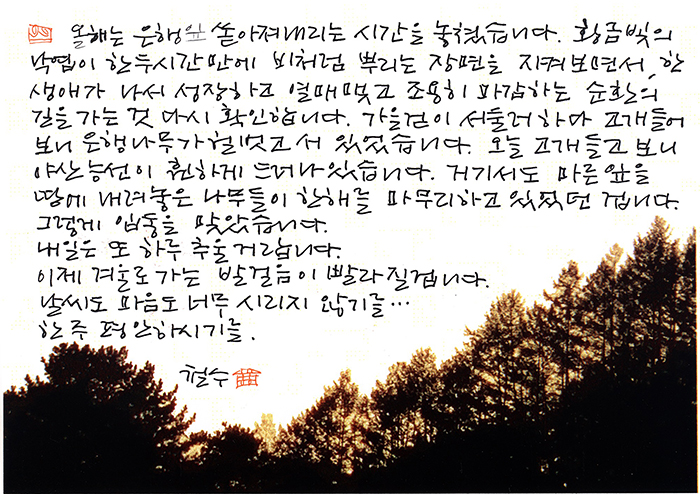 올해는 은행잎 쏟아져내리는 시간을 놓쳤습니다. 황금빛의
낙엽이 한두시간만에 비처럼 뿌리는 장면을 지켜보면서, 한
생애가 나서 성장하고 열매맺고 조용히 마감하는 순환의
길을 가는 것 다시 확인합니다. 가을걷이 서둘러 하다 고개들어
보니 은행나무가 헐벗고 서 있었습니다. 오늘 고개들고 보니
야산 능선이 훤하게 드러나있습니다. 거기서도 마른잎을
땅에 내려놓은 나무들이 한해를 마무리하고 있었던 겁니다.
그렇게 입동을 맞았습니다.
내일은 또 하루 추울거랍니다.
이제 겨울로 가는 발걸음이 빨라질겁니다.
날씨도 마음도 너무 시리지 않기를…
한 주 평안하시기를.
철수